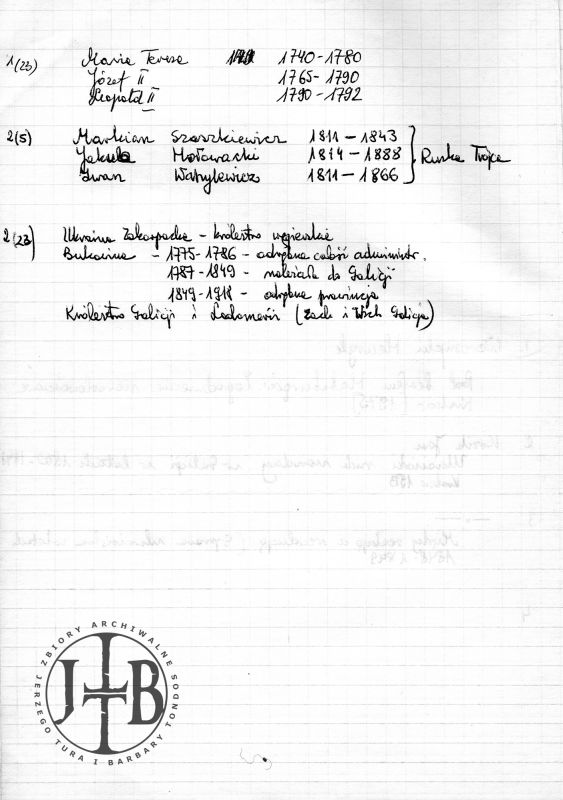 1(23) Maria Teresa 1740-1780
Józef II 1765-1790
Leopold II 1790-1792
2(5) Markian Szaszkiewicz 1811-1843
Jakub Hołowacki 1814-1888
Iwan Wahylewicz 1811-1866
Ruska Trójca
2(23) Ukraina Zakarpacka - królestwo węgierskie
Bukowina - 1775-1786 - odrębna całość administr.
1787-1849 - należała do Galicji
1849-1918 - odrębna prowincja
Królestwo Galicji i Lodomerii (Zach i Wsch Galicja)
ZBIORY ARCHIWALNE
JTB
JERZEGO TURA I BARBARY TONDOS